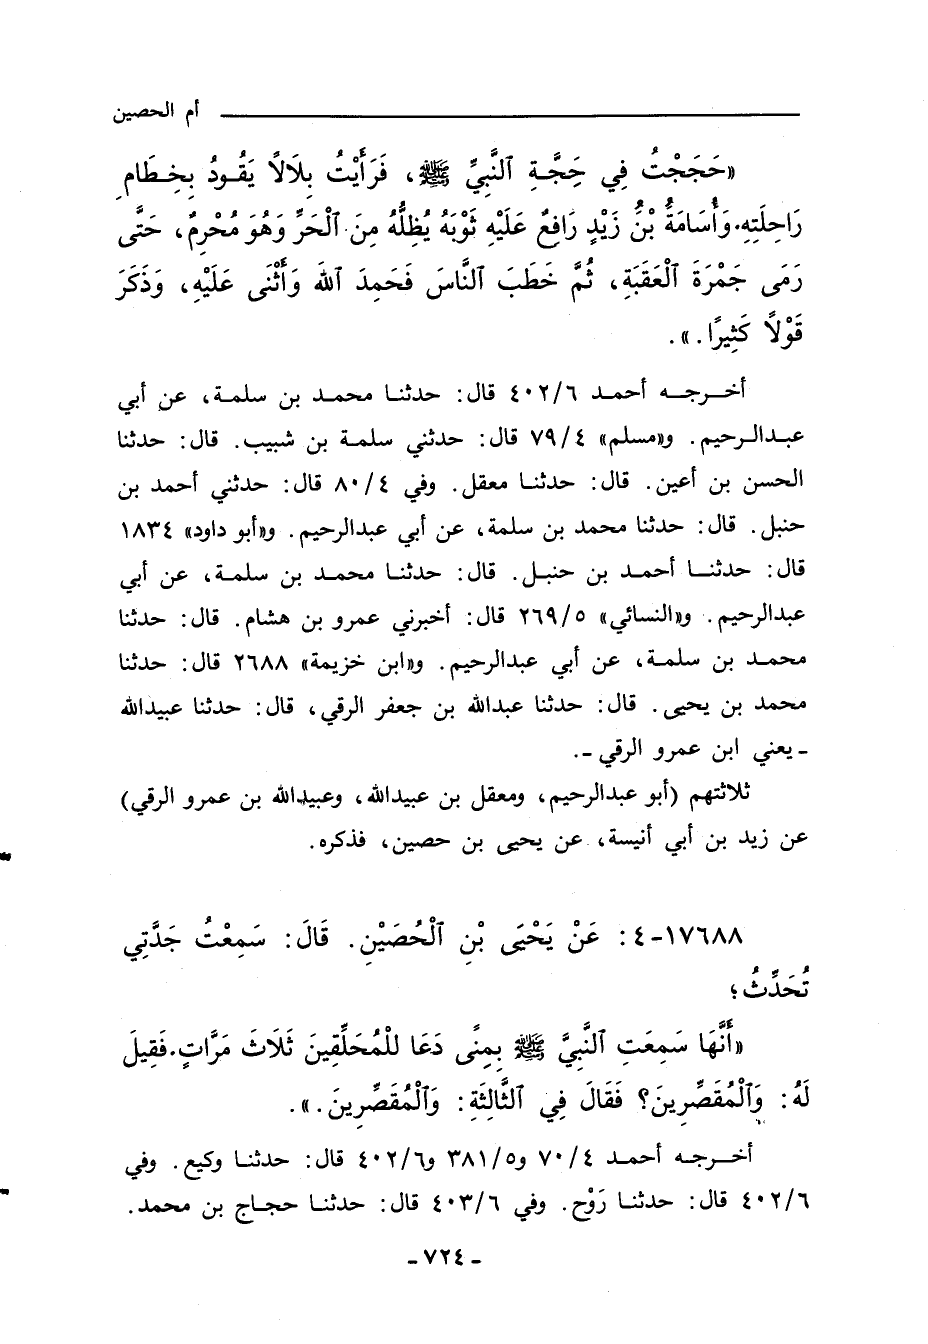 أم الحصين
«حَجَجْتُ فِي حَجَّةِ ٱلنَّبِيِّ ﷺ، فَرَأَيْتُ بِلَالاً يَقُودُ بِخِطَامِ
رَاحِلَتِهِ. وَأُسَامَةُ بْنُ زَيْدٍ رَافِعٌ عَلَيْهِ ثَوْبَهُ يُظِلُّهُ مِنَ ٱلْحَرِّ وَهُوَ مُحْرِمٌ، حَتَّى
رَمَى جَمْرَةَ ٱلْعَقَبَةِ، ثُمَّ خَطَبَ ٱلنَّاسَ فَحَمِدَ ٱللهَ وَأَثْنَى عَلَيْهِ، وَذَكَرَ
قَوْلاً كَثِيرًا.».
أخرجه أحمد ٤٠٢/٦ قال: حدثنا محمد بن سلمة، عن أبي
عبدالرحيم. و«مسلم» ٧٩/٤ قال: حدثني سلمة بن شبيب. قال: حدثنا
الحسن بن أعين. قال: حدثنا معقل. وفي ٨٠/٤ قال: حدثني أحمد بن
حنبل. قال: حدثنا محمد بن سلمة، عن أبي عبدالرحيم. و«أبو داود» ١٨٣٤
قال: حدثنا أحمد بن حنبل. قال: حدثنا محمد بن سلمة، عن أبي
عبدالرحيم. و«النسائي» ٢٦٩/٥ قال: أخبرني عمرو بن هشام. قال: حدثنا
محمد بن سلمة، عن أبي عبدالرحيم. و«ابن خزيمة» ٢٦٨٨ قال: حدثنا
محمد بن يحيى. قال: حدثنا عبدالله بن جعفر الرقي، قال: حدثنا عبيدالله
ـ يعني ابن عمرو الرقي ـ.
ثلاثتهم (أبو عبدالرحيم، ومعقل بن عبيدالله، وعبيدالله بن عمرو الرقي)
عن زيد بن أبي أنيسة، عن يحيى بن حصين، فذكره.
١٧٦٨٨-٤: عَنْ يَحْيَى بْنِ ٱلْحُصَيْنِ. قَالَ: سَمِعْتُ جَدَّتِي
تُحَدِّثُ؛
«أَنَّهَا سَمِعَتِ ٱلنَّبِيَّ ﷺ بِمِنًى دَعَا لِلْمُحَلِّقِينَ ثَلَاثَ مَرَّاتٍ. فَقِيلَ
لَهُ: وَٱلْمُقَصِّرِينَ؟ فَقَالَ فِي ٱلثَّالِثَةِ: وَٱلْمُقَصِّرِينَ.».
أخرجه أحمد ٧٠/٤ و٣٨١/٥ و٤٠٢/٦ قال: حدثنا وكيع. وفي
٤٠٢/٦ قال: حدثنا رَوْح. وفي ٤٠٣/٦ قال: حدثنا حجاج بن محمد.
ـ ٧٢٤ ـ